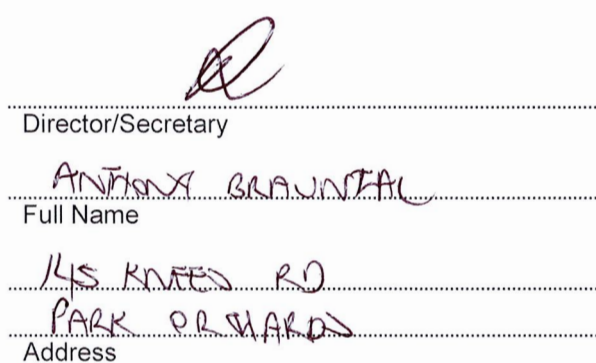 Director/Secretary
ANTHONY BRAUNTAL
Full Name
145 KNEES RD
PARK ORCHARDS
Address